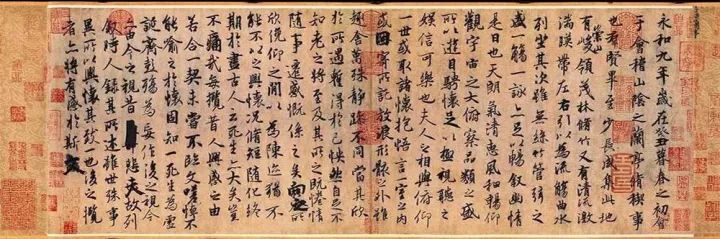 永和九年歲在癸丑暮春之初會
于會稽山陰之蘭亭脩稧事
也群賢畢至少長咸集此地
有崇山峻領茂林脩竹又有清流激
湍暎帶左右引以為流觴曲水
列坐其次雖無絲竹管弦之
盛一觴一詠亦足以暢敘幽情
是日也天朗氣清惠風和暢仰
觀宇宙之大俯察品類之盛
所以遊目騁懷足以極視聽之
娛信可樂也夫人之相與俯仰
一世或取諸懷抱悟言一室之內
或因寄所託放浪形骸之外雖
趣舍萬殊靜躁不同當其欣
於所遇蹔得於己怏然自足不
知老之將至及其所之既惓情
隨事遷感慨係之矣向之所
欣俛仰之閒以為陳迹猶不
能不以之興懷況脩短隨化終
期於盡古人云死生亦大矣豈
不痛哉每攬昔人興感之由
若合一契未嘗不臨文嗟悼不
能喻之於懷固知一死生為虛
誕齊彭殤為妄作後之視今
亦由今之視昔悲夫故列
敘時人錄其所述雖世殊事
異所以興懷其致一也後之攬
者亦將有感於斯文